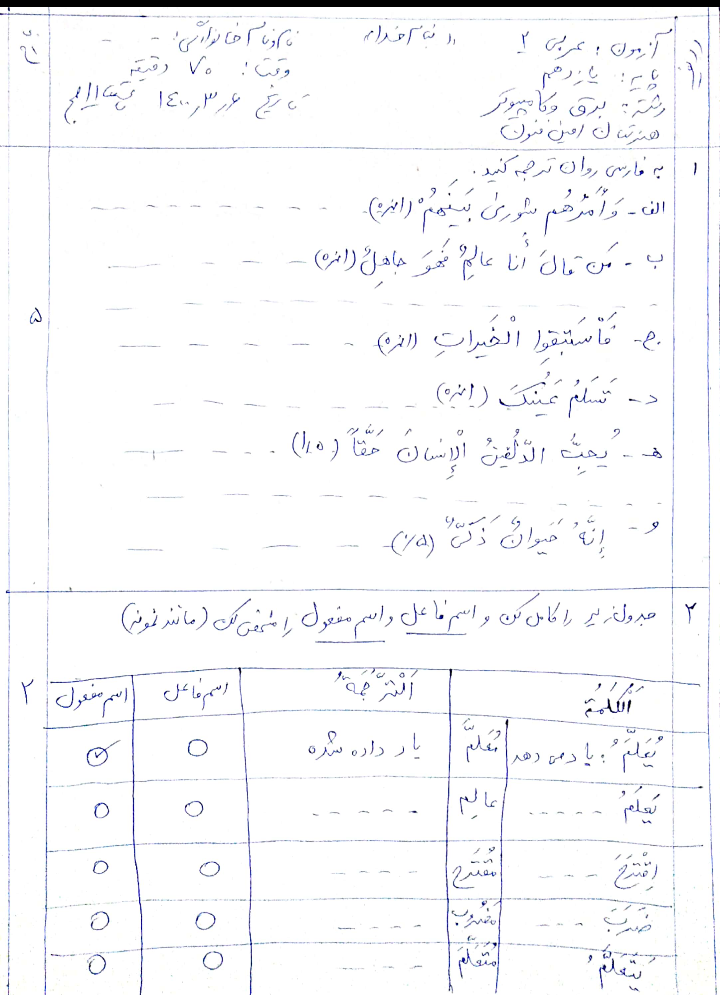 آزمون: عربی ۲ «بنام خدا» نام و نام خانوادگی: - -
پایه: یازدهم وقت: ۷۰ دقیقه
رشته: برق و کامپیوتر تاریخ ۱۴۰۰٫۳٫۶
هنرستان امین فنون
۱ به فارسی روان ترجمه کنید.
الف - وَأَمْرُهُم شورىٰ بَيْنَهُمْ (نمره) - - - - - - - - -
ب - مَن قالَ أَنا عالِمٌ فَهُوَ جاهِلٌ (نمره) - - - - -
۵
ج - فَاسْتَبِقوا الْخَيراتِ (نمره) - - - - - -
د - تَسلَمُ عَيْنُكَ (نمره) - - - - - - - -
هـ - يُحِبُّ الدُّلْفينُ الْإنسانَ حَقّاً (۱٫۵) - - - - -
و - إِنَّهُ حَيوانٌ ذَكيٌّ (٪۵) - - - - - -
۲ جدول زیر را کامل کن و اسم فاعل و اسم مفعول را مشخص کن (مانند نمونه)
۲
اَلْكَلِمَةُ اَلتَّرْجَمَةُ اسم فاعل اسم مفعول
يُعَلِّمُ: یاد می دهد مُعَلَّم یاد داده شده ○ ✓
يَعلَمُ - - - - - عالِم - - - - - ○ ○
اِقْتَرَحَ - - - مُقْتَرح - - - - ○ ○
ضَرَبَ - - - مَضْروب - - - - ○ ○
يَتَعَلَّمُ مُتَعَلِّم - - - - ○ ○